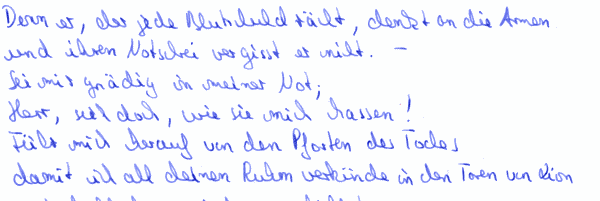 Denn er, der jede Blutschuld rächt, denkt an die Armen
und ihren Notschrei vergisst er nicht. –
Sei mir gnädig in meiner Not;
Herr, sieh doch, wie sie mich hassen!
Führ mich herauf von den Pforten des Todes,
damit ich all deinen Ruhm verkünde in den Toren von Zion